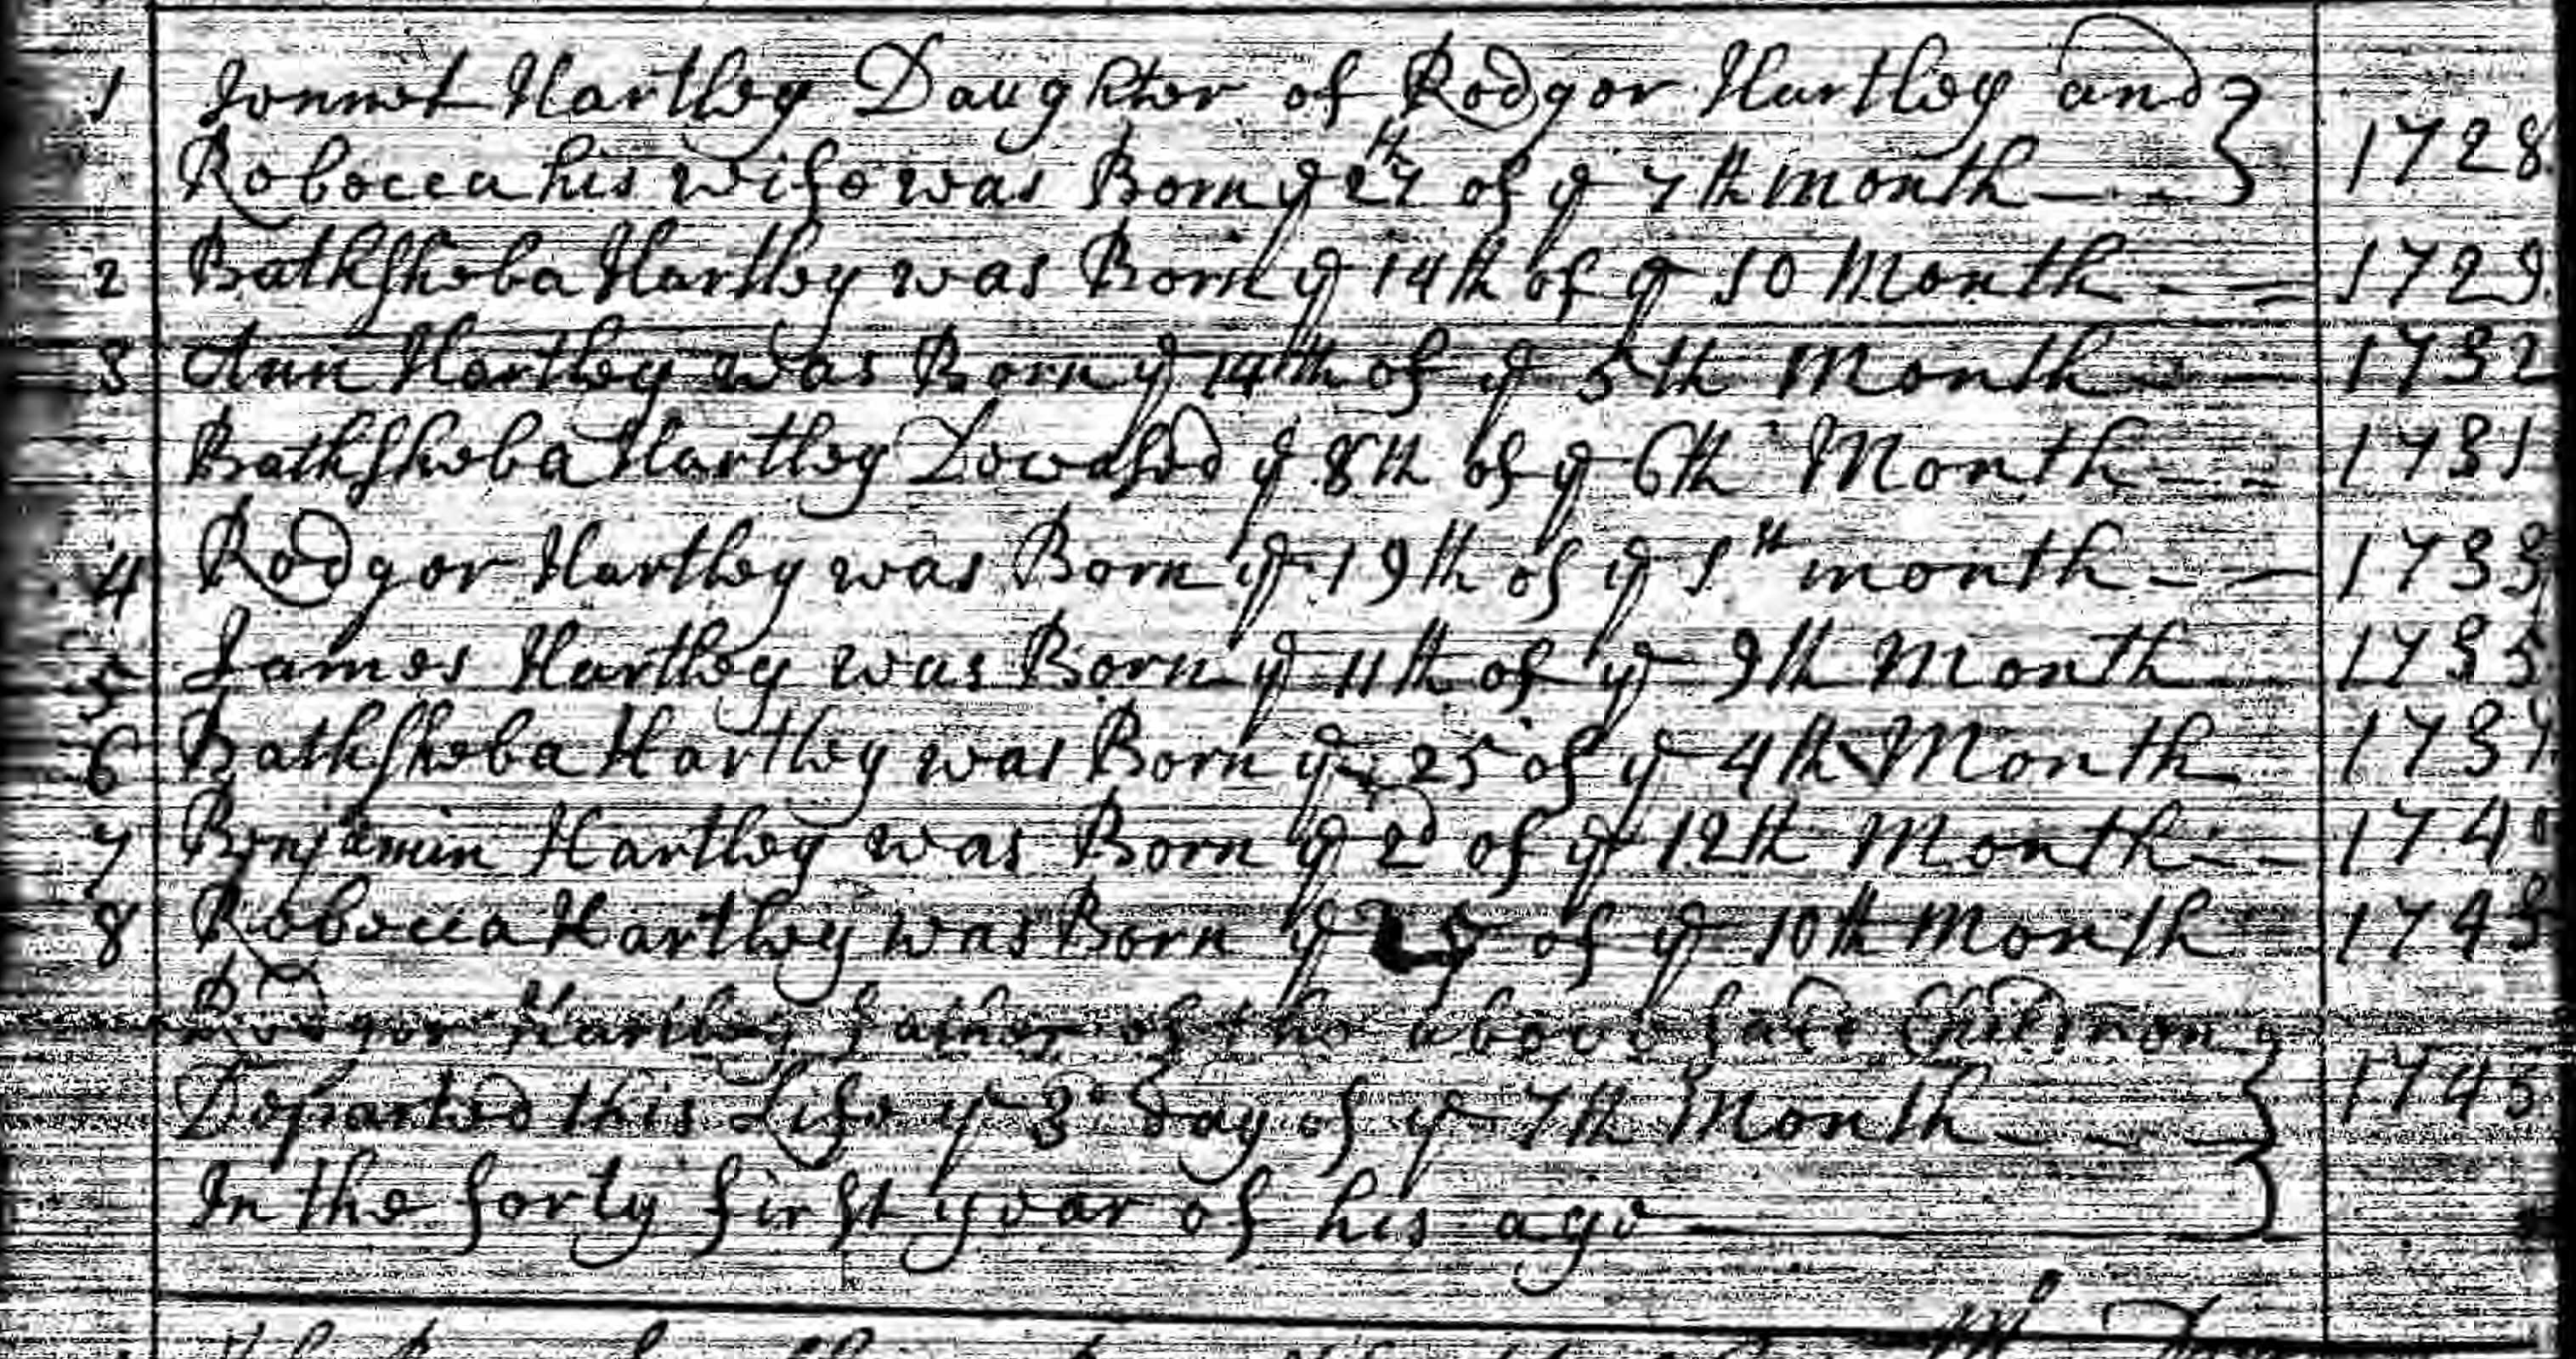 1 Jennet Hartley Daughter of Rodger Hartley and
Rebecca his wife was Born ye 27th of ye 7th month — 1728
2 Bathsheba Hartley was Born ye 14th of ye 10 Month — 1729
3 Ann Hartley was Born ye 14th of ye 5th Month — 1732
Bathsheba Hartley Deceased ye 8th of ye 6th Month — 1731
4 Rodger Hartley was Born ye 19th of ye 1th month — 1733
5 James Hartley was Born ye 11th of ye 9th Month — 1735
6 Bathsheba Hartley was Born ye 25 of ye 4th Month 1737
7 Benjamin Hartley was Born ye 2d of ye 12th Month — 1740
8 Rebecca Hartley was Born ye 25 of ye 10th Month 1743
Rodger Hartley father of the above said Children
Departed this Life ye 3d day of ye 7th Month — 1745
In the forty first year of his age —